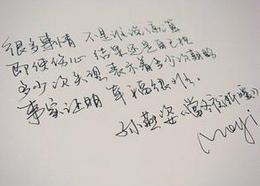 很多事情 不是谁说了就算
即使伤心 结果还是自己担
多少次失望 表示着多少次期盼
事实证明 幸福很难
孙燕姿《